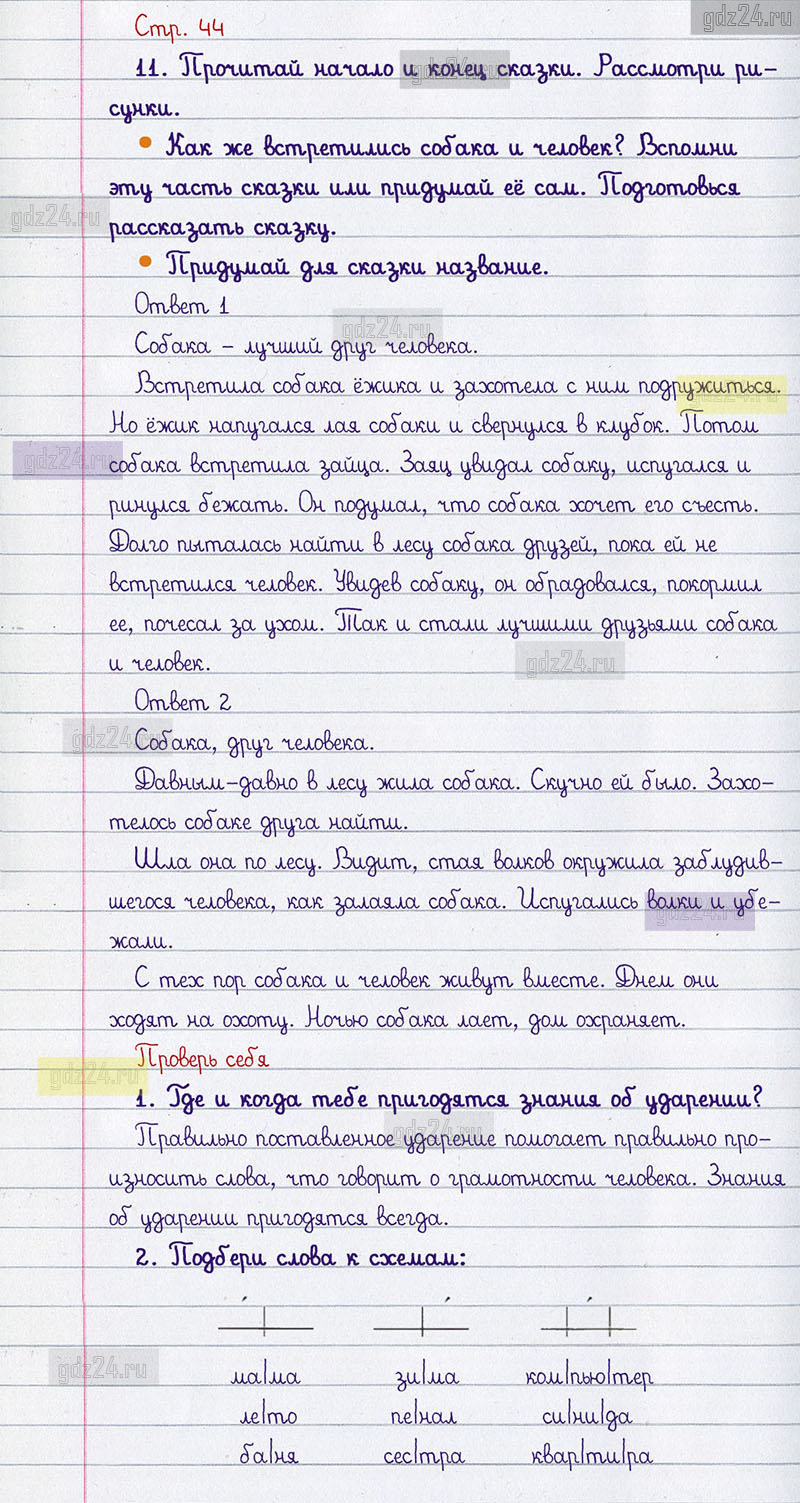 gdz24.ru
Стр. 44
11. Прочитай начало и конец сказки. Рассмотри ри-
сунки.
• Как же встретились собака и человек? Вспомни
эту часть сказки или придумай её сам. Подготовься
рассказать сказку.
• Придумай для сказки название.
Ответ 1
Собака – лучший друг человека.
Встретила собака ёжика и захотела с ним подружиться.
Но ёжик напугался лая собаки и свернулся в клубок. Потом
собака встретила зайца. Заяц увидал собаку, испугался и
ринулся бежать. Он подумал, что собака хочет его съесть.
Долго пыталась найти в лесу собака друзей, пока ей не
встретился человек. Увидев собаку, он обрадовался, покормил
ее, почесал за ухом. Так и стали лучшими друзьями собака
и человек.
Ответ 2
Собака, друг человека.
Давным-давно в лесу жила собака. Скучно ей было. Захо-
телось собаке друга найти.
Шла она по лесу. Видит, стая волков окружила заблудив-
шегося человека, как залаяла собака. Испугались волки и убе-
жали.
С тех пор собака и человек живут вместе. Днем они
ходят на охоту. Ночью собака лает, дом охраняет.
Проверь себя
1. Где и когда тебе пригодятся знания об ударении?
Правильно поставленное ударение помогает правильно про-
износить слова, что говорит о грамотности человека. Знания
об ударении пригодятся всегда.
2. Подбери слова к схемам:
ма|ма зи|ма ком|пью|тер
ле|то пе|нал си|ни|ца
ба|ня сес|тра квар|ти|ра